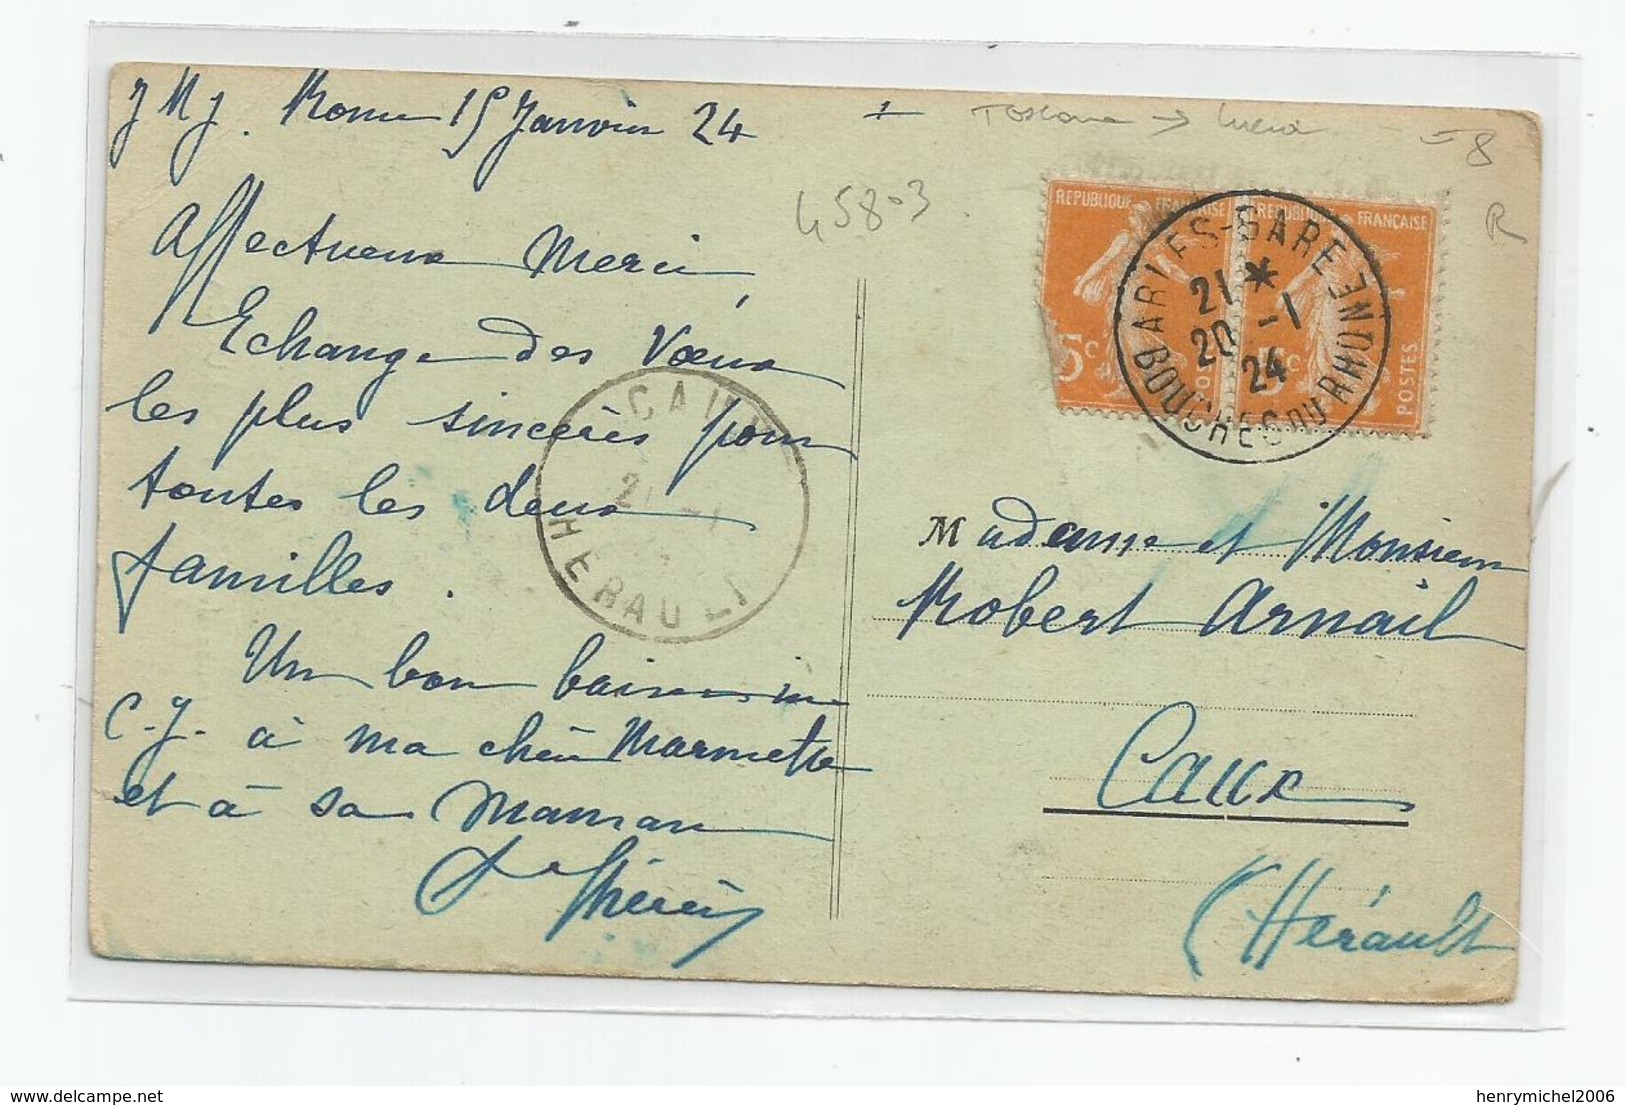 J M J. Rome 15 Janvier 24
+ Toscane → Lucca = 8
458-3
R
Affectueux Merci,
Echange des Vœux
les plus sincères pour
toutes les deux
familles.
Un bon baiser in
C.J. à ma chère Marinette
et à sa Maman
REPUBLIQUE FRANÇAISE
REPUBLIQUE FRANÇAISE
5c
5c
POSTES
ARLES-GARE
21 *
20 -1
24
BOUCHES DU RHONE
CAUX
21 -1
HERAULT
Madame et Monsieur
Robert Arnail
Caux
(Hérault
delcampe.net
henrymichel2006